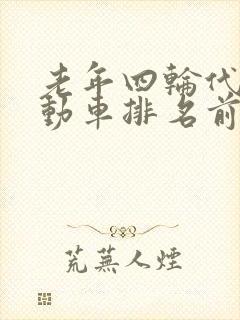 老年四輪代
動車排名前
荒蕪人煙